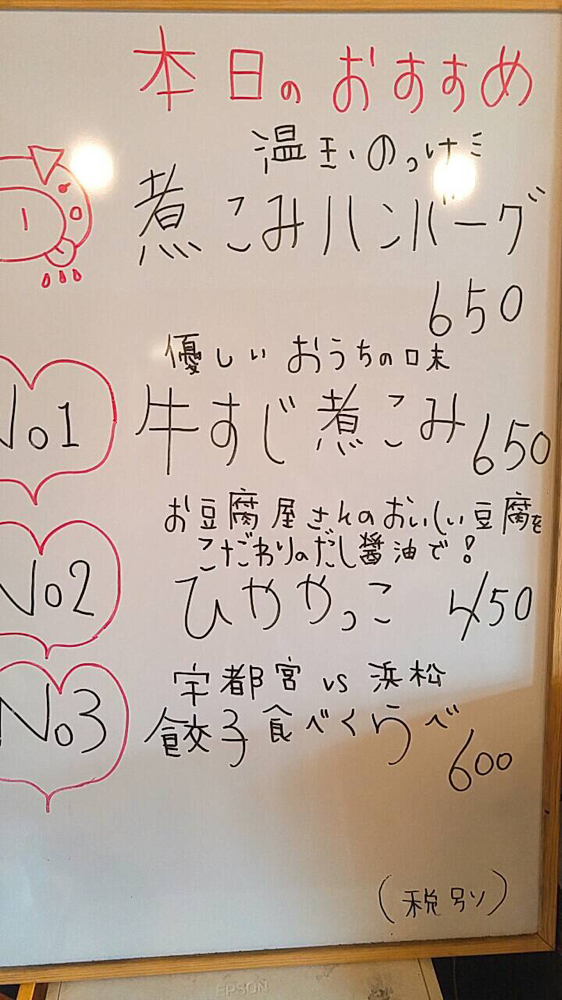 本日のおすすめ
温玉のっけ
煮こみハンバーグ
650
優しいおうちの味
No1
牛すじ煮こみ 650
お豆腐屋さんのおいしい豆腐を
こだわりのだし醤油で!
No2
ひややっこ 450
宇都宮 vs 浜松
No3
餃子食べくらべ
600
(税別)
EPSON